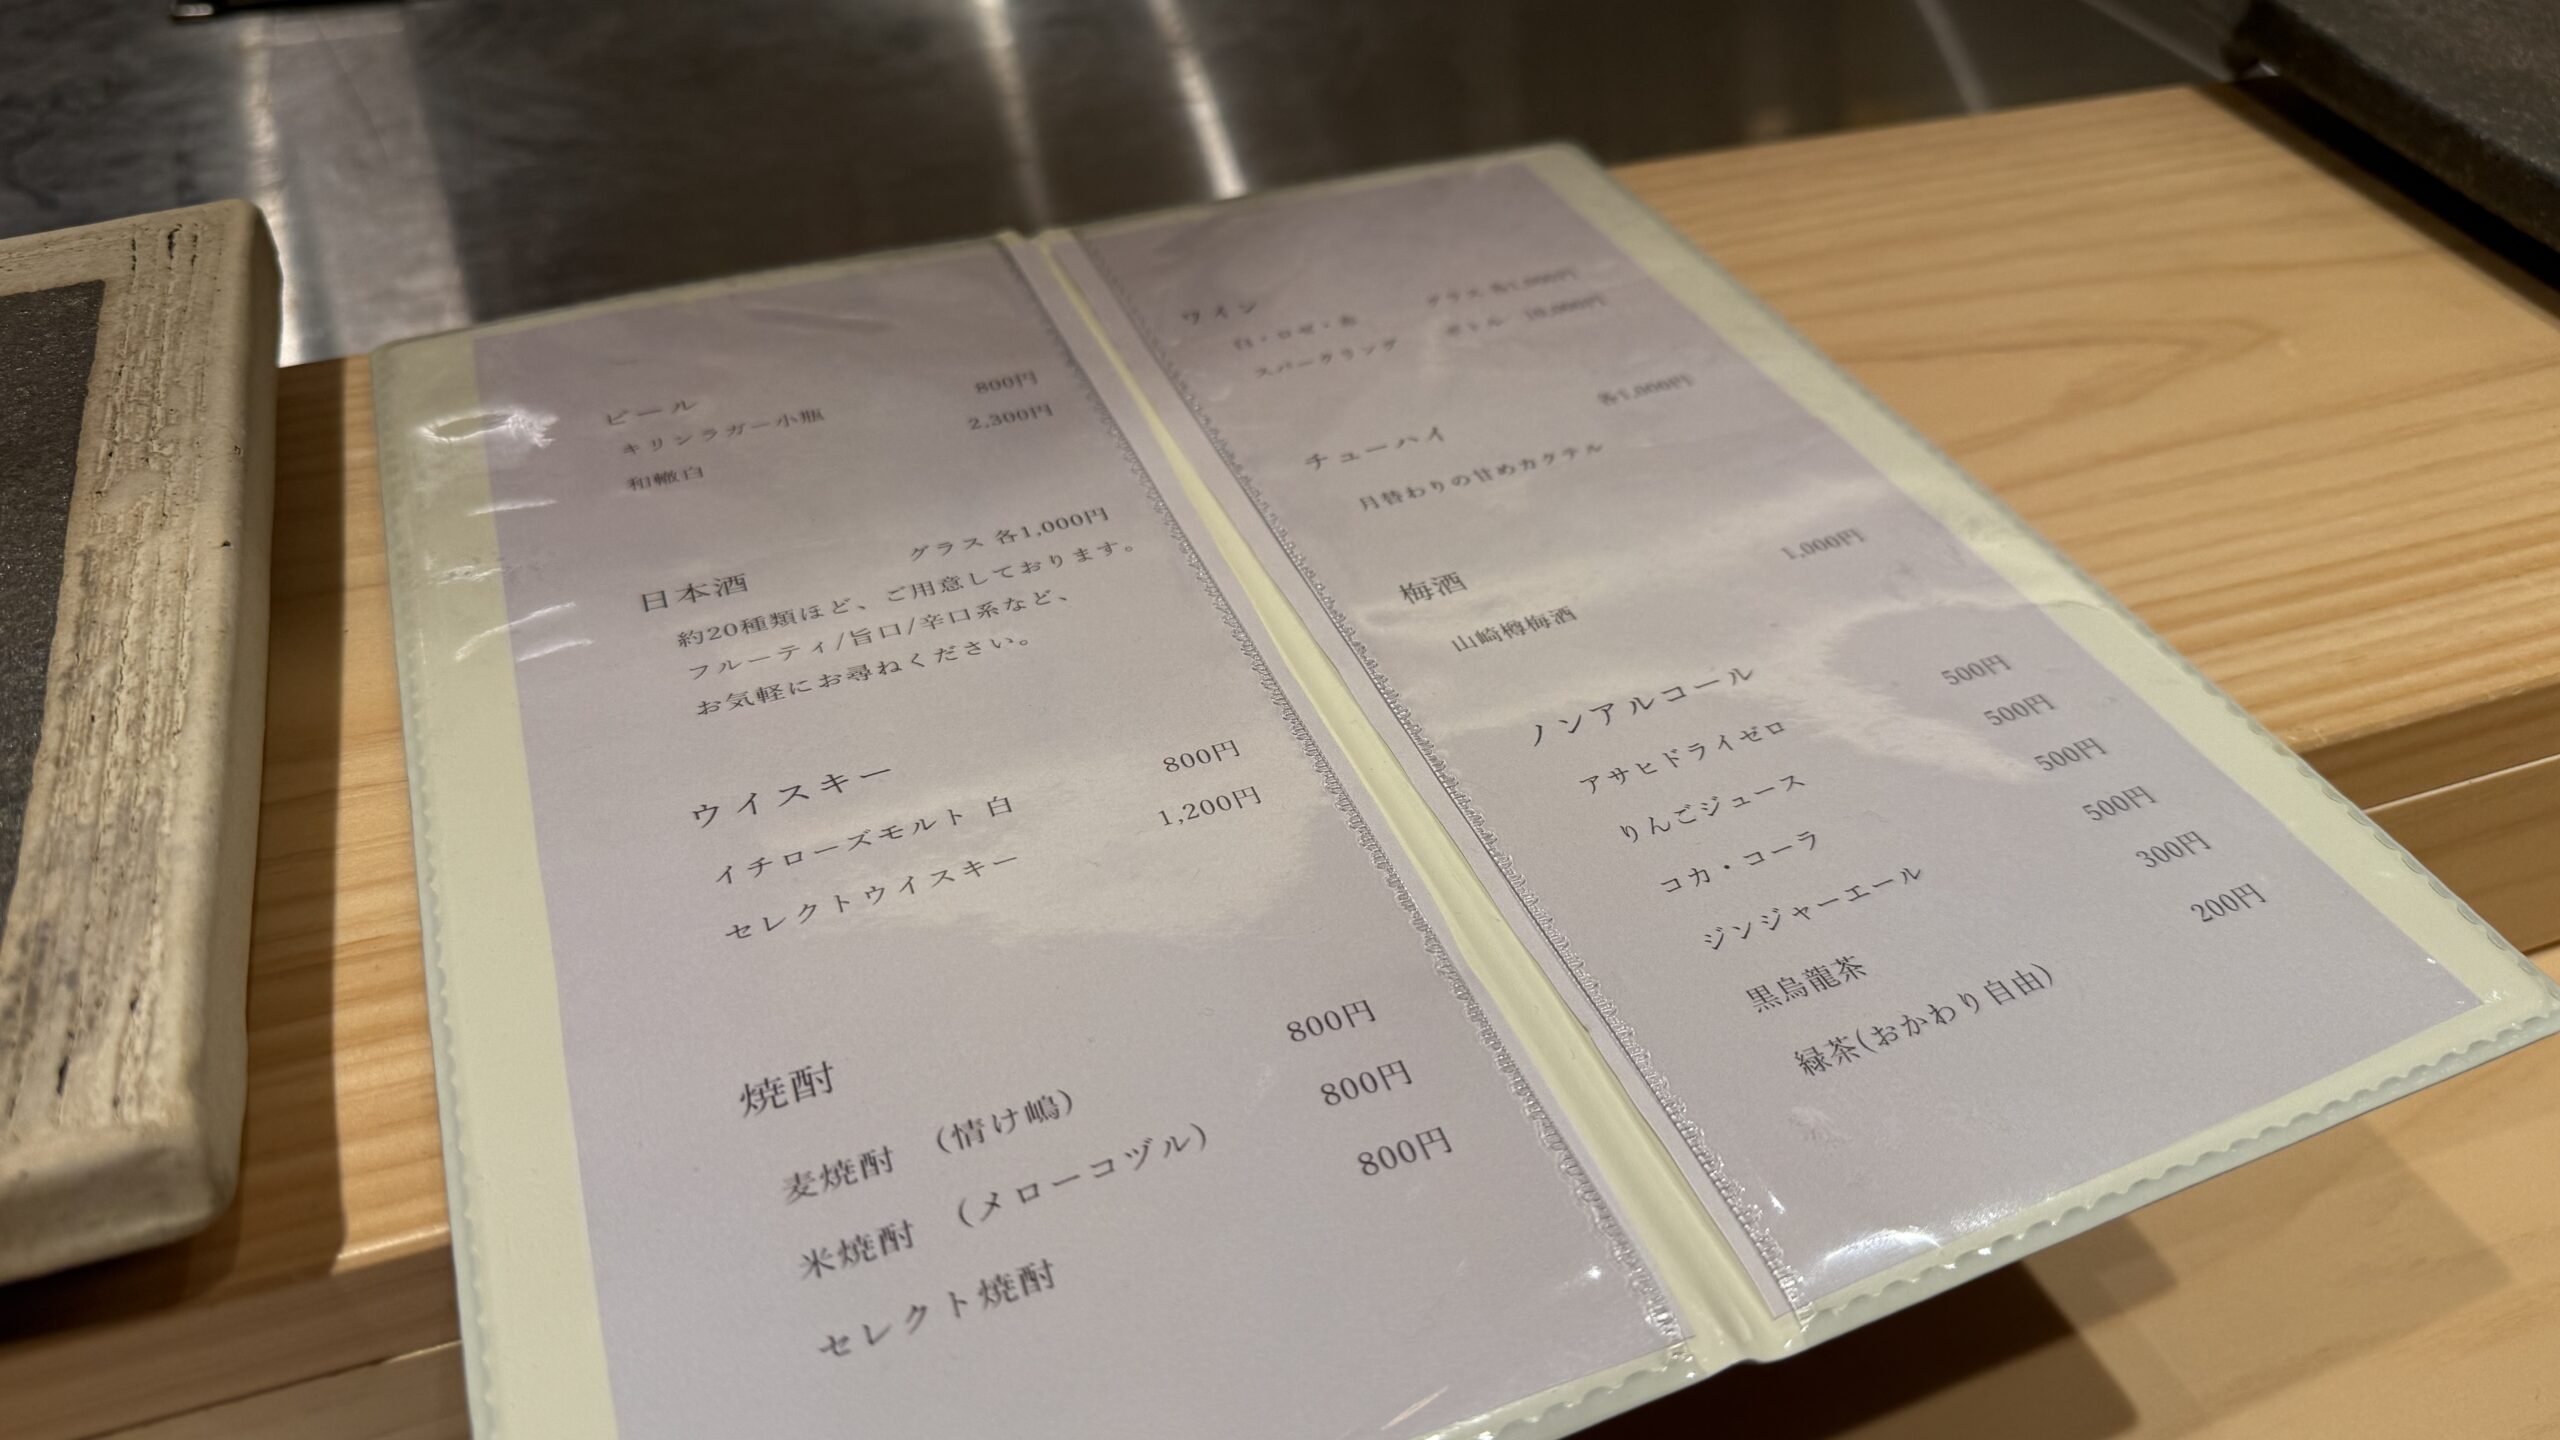 ビール
キリンラガー小瓶 800円
和轍白 2,300円
日本酒 グラス 各1,000円
約20種類ほど、ご用意しております。
フルーティ/旨口/辛口系など、
お気軽にお尋ねください。
ウイスキー
イチローズモルト 白 800円
セレクトウイスキー 1,200円
焼酎
麦焼酎 (情け嶋) 800円
米焼酎 (メローコヅル) 800円
セレクト焼酎 800円
ワイン
白・ロゼ・赤 グラス 各1,000円
スパークリング ボトル 10,000円
チューハイ 各1,000円
月替わりの甘めカクテル
梅酒
山崎樽梅酒 1,000円
ノンアルコール
アサヒドライゼロ 500円
りんごジュース 500円
コカ・コーラ 500円
ジンジャーエール 500円
黒烏龍茶 300円
緑茶(おかわり自由) 200円